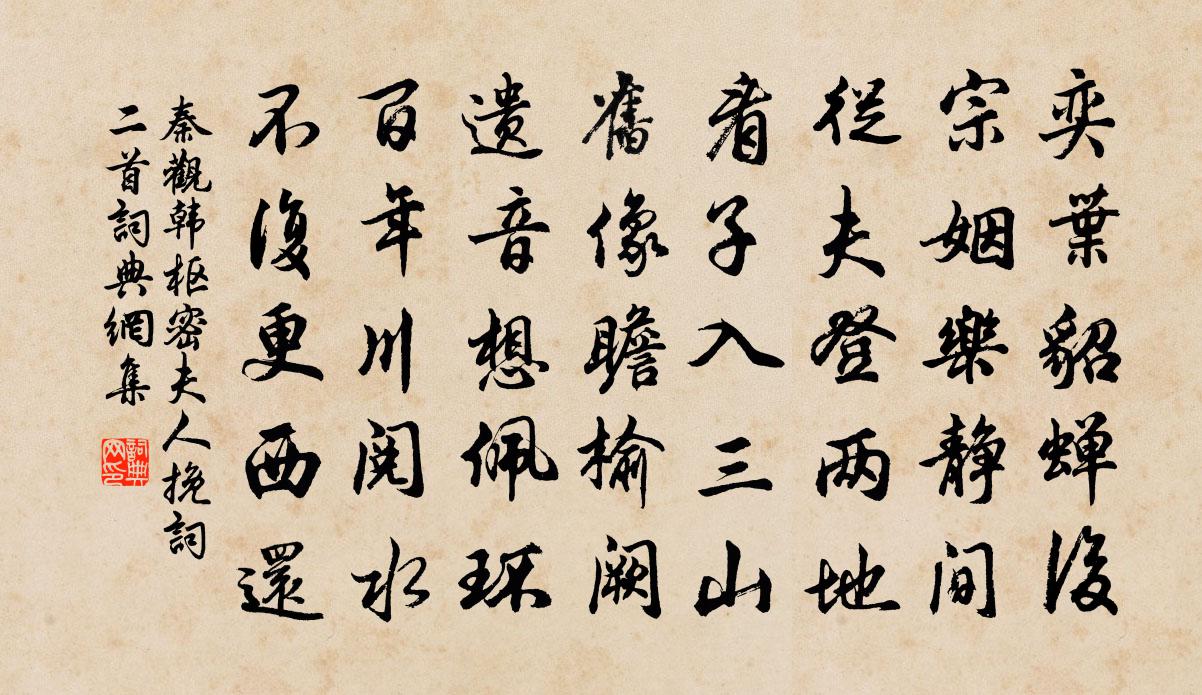 奕葉貂蟬後
宗姻樂静間
從夫登两地
看子入三山
舊像瞻榆闕
遺音想佩环
百年川閱水
不復更西還
秦觀韩枢密夫人挽詞
二首詞典網集
詞典网印